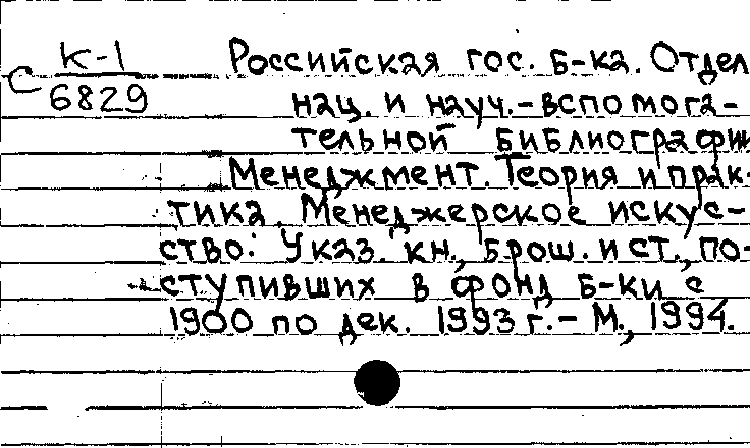 С К-1
6829
Российская гос. б-ка. Отдел
нац. и науч.-вспомога-
тельной библиографии
Менеджмент. Теория и прак-
тика. Менеджерское искус-
ство: Указ. кн., брош. и ст., по-
ступивших в фонд б-ки с
1900 по дек. 1993 г. - М., 1994.